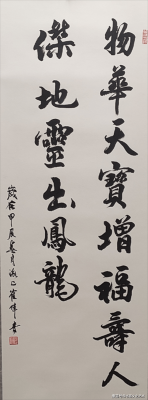 物華天寶增福壽人
傑地靈出鳳龍
歲在甲辰